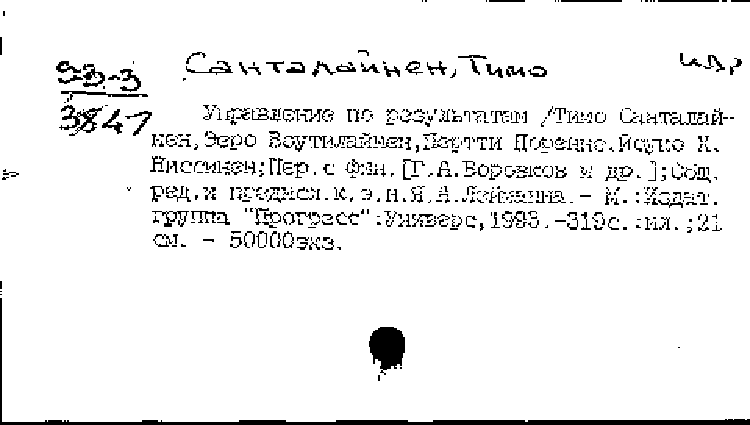 Санталайнен, Тимо
93-3
3847
Управление по результатам /Тимо Санталай-
нен, Ээро Воутилайнен, Пертти Поренне, Йоуко Х.
Ниссинен; Пер. с фин. [Г.А.Воровков и др.]; Общ.
ред. и предисл. к.э.н. Я.А.Лейманна. - М.: Издат.
группа "Прогресс": Универс, 1993. -319с.:ил.;21
см. - 50000экз.